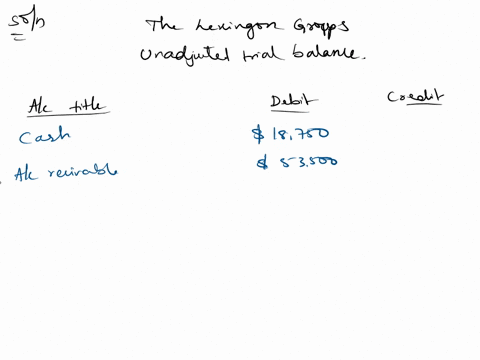 soln
The Lexingon Gropps
Unadjuted trial balance.
A/c title Debit Credit
Cash $ 18,750
A/c recivable $ 53,500